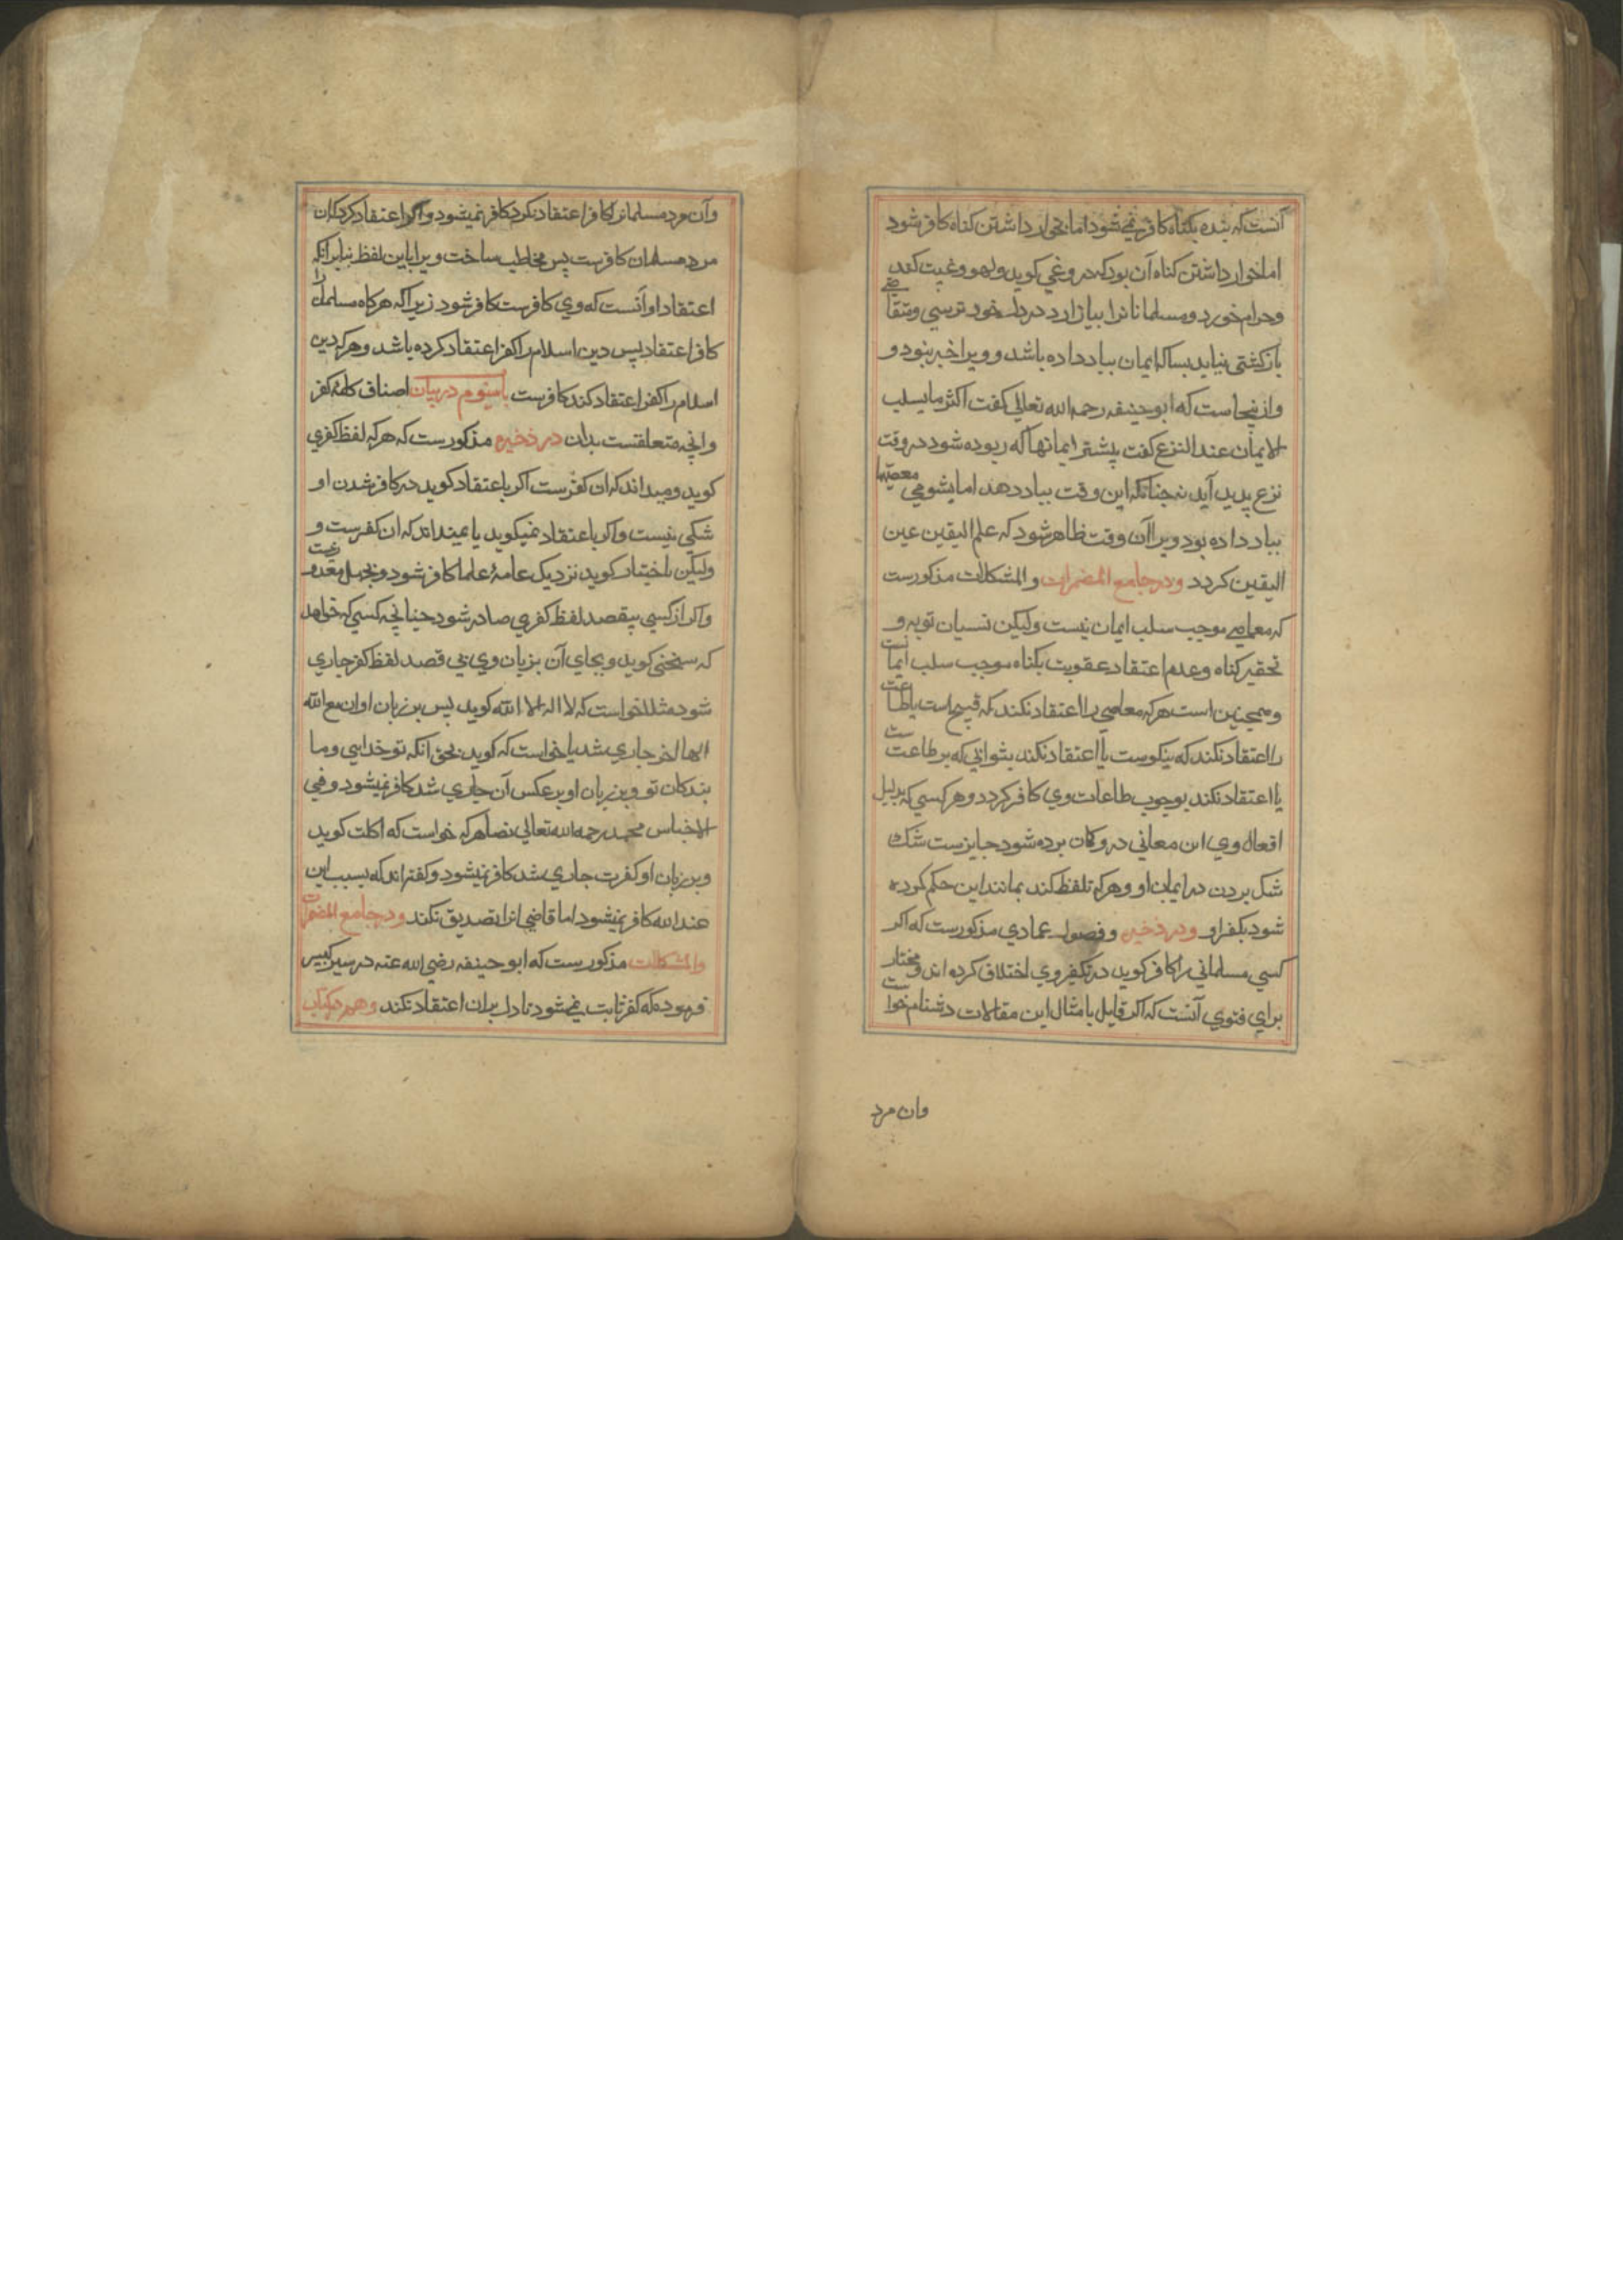 آنست که بنده بکناه کافر نمی شود اما بخوار داشتن کناه کافر شود
اما خوار داشتن کناه آن بود که دروغی کوید و لهو و غیبت کند
و حرام خورد و مسلمانانرا بیازارد در دل خود ترسی و تقاضی
بازکشتی نیابد بسا که ایمان بباد داده باشد و ویرا خبر نبود و
وازینجاست که ابوحنیفه رحمه الله تعالی کفت اکثر ما یسلب
الایمان عند النزع کفت بیشتر ایمانها که ربوده شود در وقت
نزع پدید آید نه چنانکه این وقت بباد دهد اما بشومی معصیتها
بباد داده بود ویرا آن وقت ظاهر شود که علم الیقین عین
الیقین کردد و در جامع المضمرات والمشکلات مذکورست
که معاصی موجب سلب ایمان نیست ولیکن نسیان توبه و
تحقیر کناه و عدم اعتقاد عقوبت بکناه موجب سلب ایمانست
وهمچنین است هر که معاصی را اعتقاد نکند که قبیح است یا طاعت
را اعتقاد نکند که نیکوست یا اعتقاد نکند بثوابی که بر طاعتست
یا اعتقاد نکند بوجوب طاعات وی کافر کردد و هر کسی که بدلیل
افعال وی این معانی در وکان برده شود جایزست شک
شک بردن در ایمان او و هر که تلفظ کند بمانند این حکم کرده
شود بکفر او و در ذخیره و فصول عمادی مذکورست که اکر
کسی مسلمانی را کافر کوید در تکفیر وی اختلاف کرده اند و مختار
برای فتوی آنست که اکر قایل بامثال این مقالات دشنام خواست
وان مرد
وآن مرد مسلمانرا کافر اعتقاد نکرد کافر نمیشود و اکر اعتقاد کرد که ان
مرد مسلمان کافرست پس مخاطب ساخت ویرا باین لفظ بنابر انکه
اعتقاد او آنست که وی کافرست کافر شود زیرا که هر کاه مسلمان را
کافر اعتقاد پس دین اسلام را کفر اعتقاد کرده باشد و هر که دین
اسلام را کفر اعتقاد کند کافرست باب سیوم در بیان اصناف کلمهٔ کفر
وانچه متعلقست بدان در ذخیره مذکورست که هر که لفظ کفری
کوید و میداند که ان کفرست اکر باعتقاد کوید در کافر شدن او
شکی نیست و اکر باعتقاد نمیکوید یا نمیداند که ان کفرست و
ولیکن باختیار کوید نزدیک عامهٔ علما کافر شود و بجهل معذور نیست
واکر از کسی بیقصد لفظ کفری صادر شود چنانچه کسی که خواهد
که سخنی کوید و بجای آن بزبان وی بی قصد لفظ کفر جاری
شود مثلا خواست که لا اله الا الله کوید پس بر زبان او ان مع الله
الها اخر جاری شد یا خواست که کوید بحق انکه تو خدایی و ما
بندکان تو و بر زبان او بر عکس آن جاری شد کافر نمیشود و فی
الاجناس محمد رحمه الله تعالی نصا هر که خواست که اکلت کوید
و بر زبان او کفرت جاری شد کافر نمیشود و کفته اند که بسبب این
عند الله کافر نمیشود اما قاضی انرا تصدیق نکند و در جامع المضمرات
والمشکلات مذکورست که ابو حنیفه رضی الله عنه در سیر کبیر
فرموده که کفر ثابت نمی شود تا دل بران اعتقاد نکند و هم در کتاب